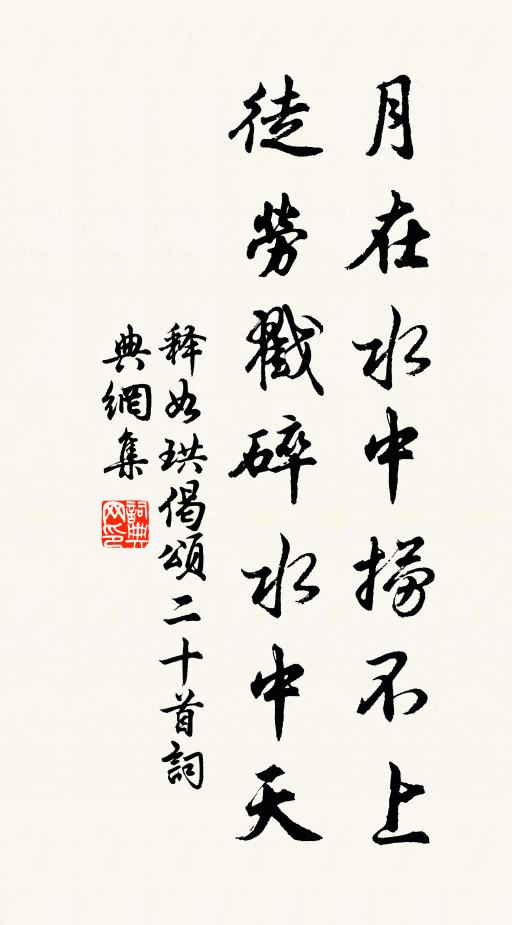 月在水中撈不上
徒勞戳碎水中天
释如珙偈頌二十首詞
典網集
詞典
网印